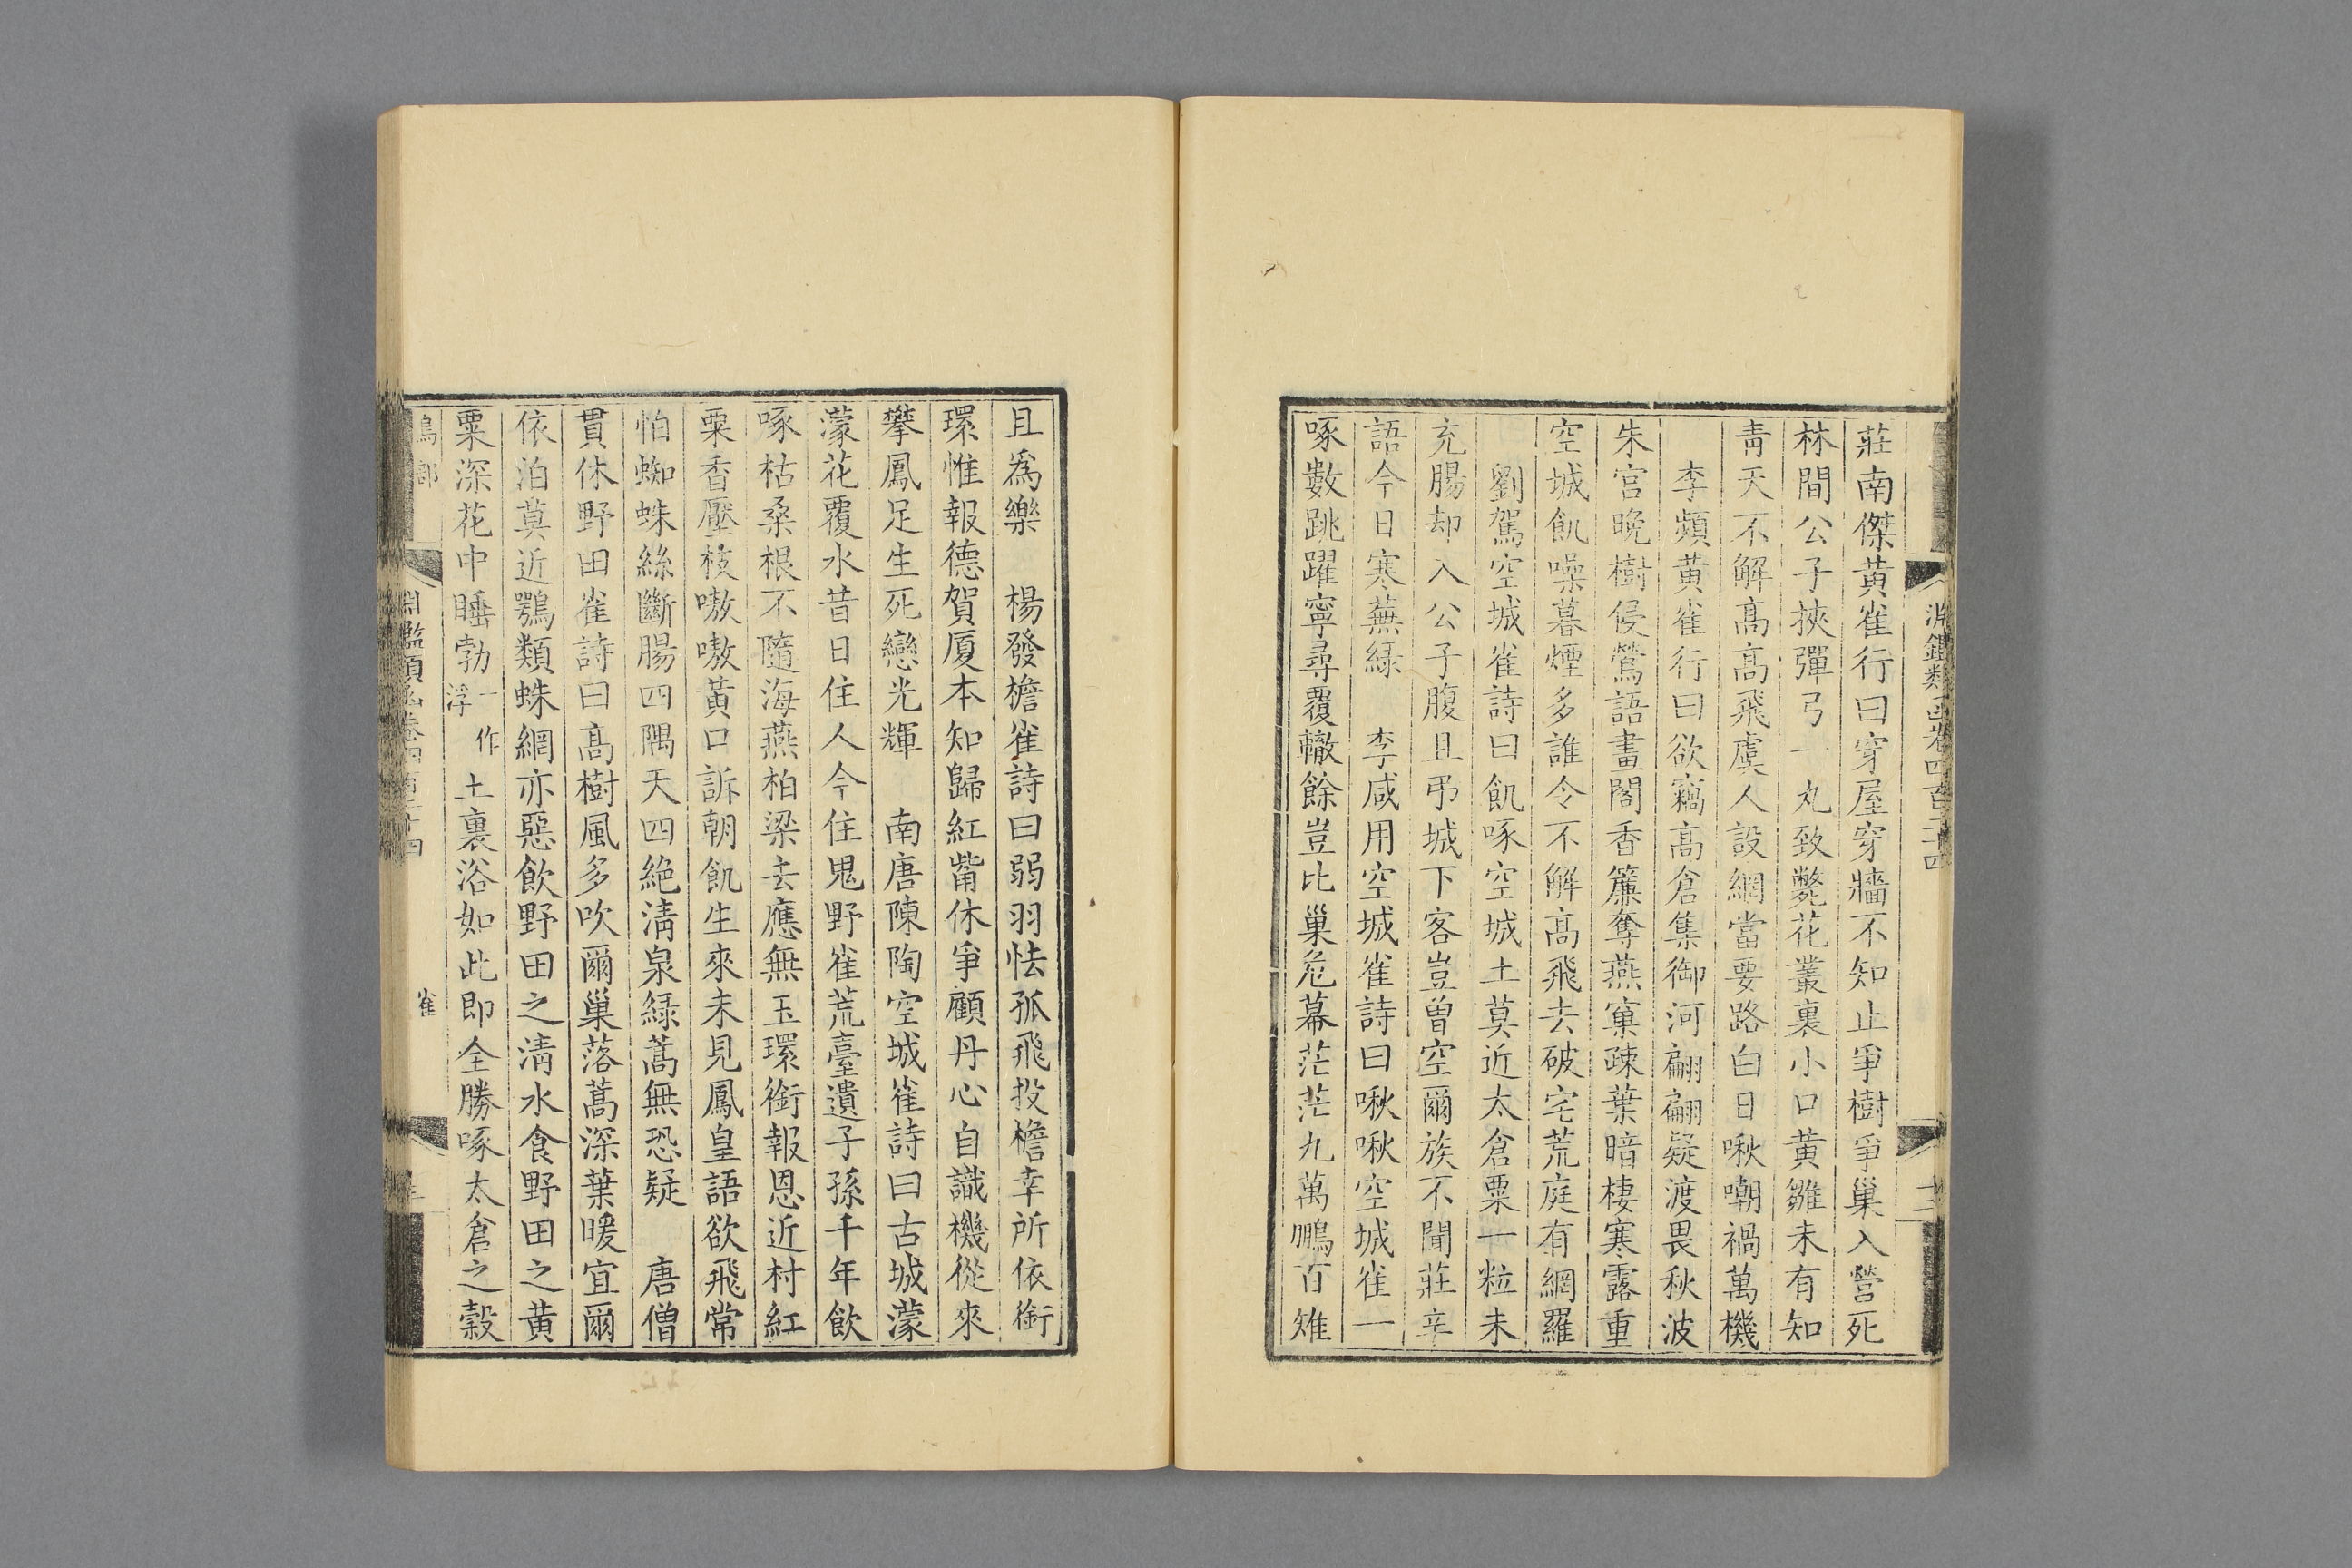 莊南傑黃雀行曰穿屋穿牆不知止爭樹爭巢入營死
林間公子挾彈弓一丸致斃花叢裏小口黃雛未有知
靑天不解髙髙飛虞人設網當要路白日啾嘲禍萬機
李頻黃雀行曰欲竊髙倉集御河翩翩疑渡畏秋波
朱宮晚樹侵鶯語畫閣香簾奪燕窠疎葉暗棲寒露重
空城飢噪暮煙多誰令不解髙飛去破宅荒庭有網羅
劉駕空城雀詩曰飢啄空城土莫近太倉粟一粒未
充腸却入公子腹且弔城下客豈曾空爾族不聞莊辛
語今日寒蕪綠　李咸用空城雀詩曰啾啾空城雀一
啄數跳躍寧尋覆轍餘豈比巢危幕茫茫九萬鵬百雉
且爲樂　楊發檐雀詩曰弱羽怯孤飛投檐幸所依銜
環惟報德賀厦本知歸紅觜休爭顧丹心自識機從來
攀鳳足生死戀光輝　南唐陳陶空城雀詩曰古城濛
濛花覆水昔日住人今住鬼野雀荒臺遺子孫千年飲
啄枯桑根不隨海燕柏梁去應無玉環銜報恩近村紅
粟香壓枝嗷嗷黃口訴朝飢生來未見鳳皇語欲飛常
怕蜘蛛絲斷腸四隅天四絶淸泉綠蒿無恐疑　唐僧
貫休野田雀詩曰髙樹風多吹爾巢落蒿深葉暖宜爾
依泊莫近鶚類蛛網亦惡飲野田之淸水食野田之黃
粟深花中睡勃一作浮土裏浴如此即全勝啄太倉之穀
鳥部
淵鑑類函卷四百二十四
雀